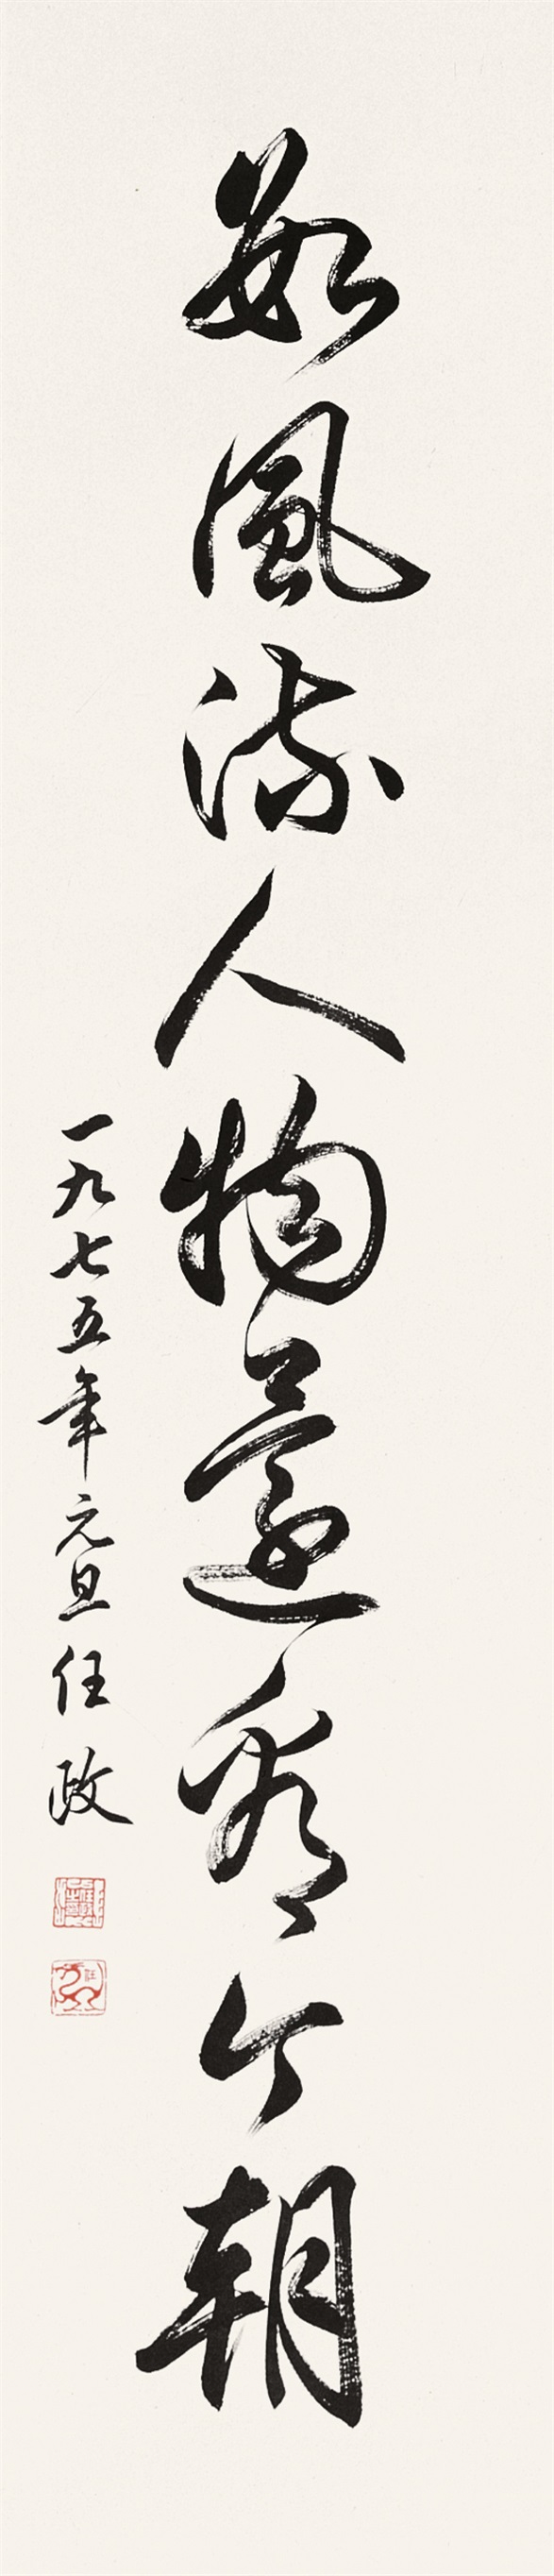 数風流人物還看今朝
一九七五年元旦任政